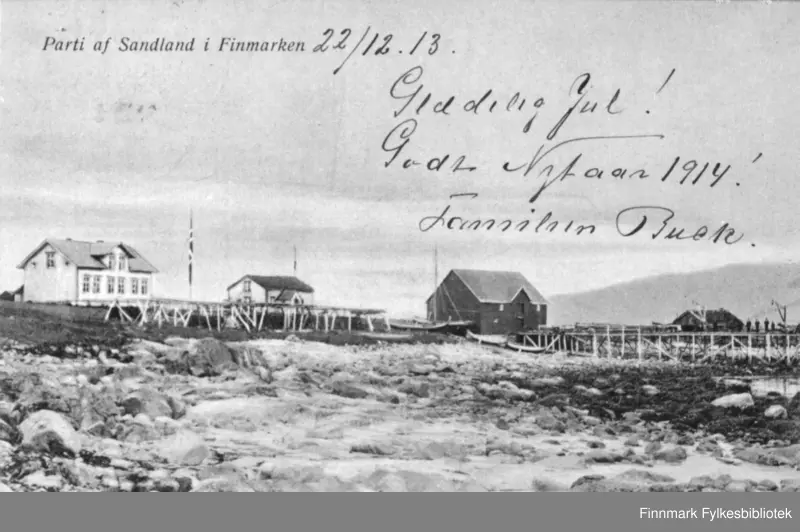 Parti af Sandland i Finmarken 22/12.13.
Glædelig Jul!
Godt Nytaar 1914!
Familien Buck.
Finnmark Fylkesbibliotek